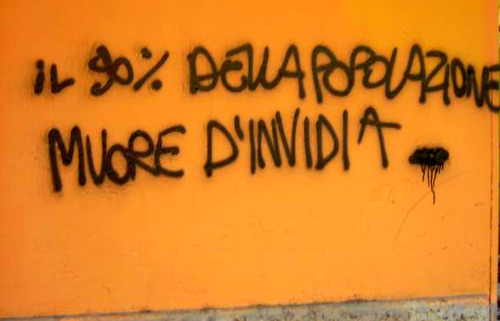 iL 90% DELLA POPOLAZIONE
MUORE D'INVIDIA